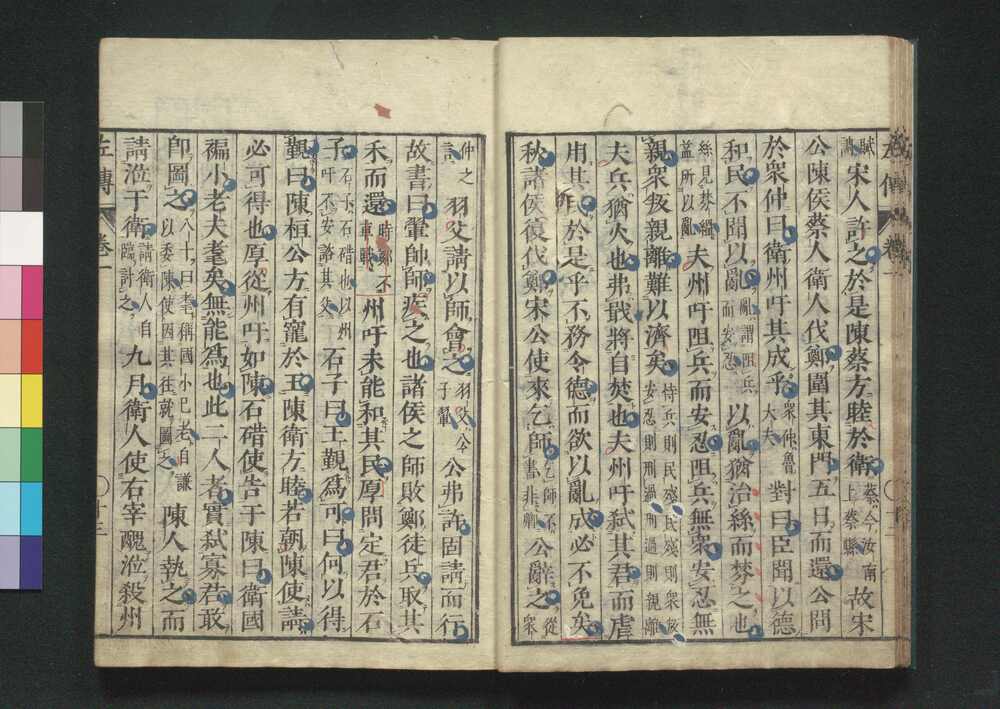 賦調宋人許之於是陳蔡方睦於衛蔡今汝南上蔡縣故宋
公陳侯蔡人衛人伐鄭圍其東門五日而還公問
於衆仲曰衛州吁其成乎衆仲魯大夫對曰臣聞以德
和民不聞以亂亂謂阻兵而安忍以亂猶治絲而棼之也
絲見棼縕益所以亂夫州吁阻兵而安忍阻兵無衆安忍無
親衆叛親離難以濟矣恃兵則民殘民殘則衆叛安忍則刑過刑過則親離
夫兵猶火也弗戢將自焚也夫州吁弑其君而虐
用其民於是乎不務令德而欲以亂成必不免矣
秋諸侯復伐鄭宋公使來乞師乞師不書非卿公辭之從衆
仲之言羽父請以師會之羽父公子翬公弗許固請而行
故書曰翬帥師疾之也諸侯之師敗鄭徒兵取其
禾而還時鄭不車戰州吁未能和其民厚問定君於石
子石子石碏也以州吁不安諮其父石子曰王覲爲可曰何以得
覲曰陳桓公方有寵於王陳衛方睦若朝陳使請
必可得也厚從州吁如陳石碏使告于陳曰衛國
褊小老夫耄矣無能爲也此二人者實弑寡君敢
即圖之八十曰耄稱國小己老自謙以委陳使因其往就圖之陳人執之而
請涖于衛請衛人自臨討之九月衛人使右宰醜涖殺州
左傳 卷一 十三